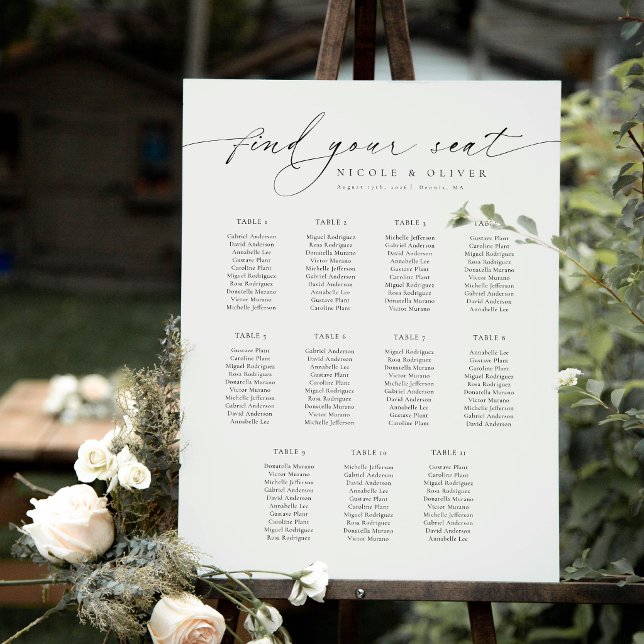 find your seat
NICOLE & OLIVER
August 17th, 2026 | Dennis, MA
TABLE 1
Gabriel Anderson
David Anderson
Annabelle Lee
Gustave Plant
Caroline Plant
Miguel Rodriguez
Rosa Rodriguez
Donatella Murano
Victor Murano
Michelle Jefferson
TABLE 2
Miguel Rodriguez
Rosa Rodriguez
Donatella Murano
Victor Murano
Michelle Jefferson
Gabriel Anderson
David Anderson
Annabelle Lee
Gustave Plant
Caroline Plant
TABLE 3
Michelle Jefferson
Gabriel Anderson
David Anderson
Annabelle Lee
Gustave Plant
Caroline Plant
Miguel Rodriguez
Rosa Rodriguez
Donatella Murano
Victor Murano
Gustave Plant
Caroline Plant
Miguel Rodriguez
Rosa Rodriguez
Donatella Murano
Victor Murano
Michelle Jefferson
Gabriel Anderson
David Anderson
Annabelle Lee
TABLE 5
Gustave Plant
Caroline Plant
Miguel Rodriguez
Rosa Rodriguez
Donatella Murano
Victor Murano
Michelle Jefferson
Gabriel Anderson
David Anderson
Annabelle Lee
TABLE 6
Gabriel Anderson
David Anderson
Annabelle Lee
Gustave Plant
Caroline Plant
Miguel Rodriguez
Rosa Rodriguez
Donatella Murano
Victor Murano
Michelle Jefferson
TABLE 7
Miguel Rodriguez
Rosa Rodriguez
Donatella Murano
Victor Murano
Michelle Jefferson
Gabriel Anderson
David Anderson
Annabelle Lee
Gustave Plant
Caroline Plant
TABLE 8
Annabelle Lee
Gustave Plant
Caroline Plant
Miguel Rodriguez
Rosa Rodriguez
Donatella Murano
Victor Murano
Michelle Jefferson
Gabriel Anderson
David Anderson
TABLE 9
Donatella Murano
Victor Murano
Michelle Jefferson
Gabriel Anderson
David Anderson
Annabelle Lee
Gustave Plant
Caroline Plant
Miguel Rodriguez
Rosa Rodriguez
TABLE 10
Michelle Jefferson
Gabriel Anderson
David Anderson
Annabelle Lee
Gustave Plant
Caroline Plant
Miguel Rodriguez
Rosa Rodriguez
Donatella Murano
Victor Murano
TABLE 11
Gustave Plant
Caroline Plant
Miguel Rodriguez
Rosa Rodriguez
Donatella Murano
Victor Murano
Michelle Jefferson
Gabriel Anderson
David Anderson
Annabelle Lee